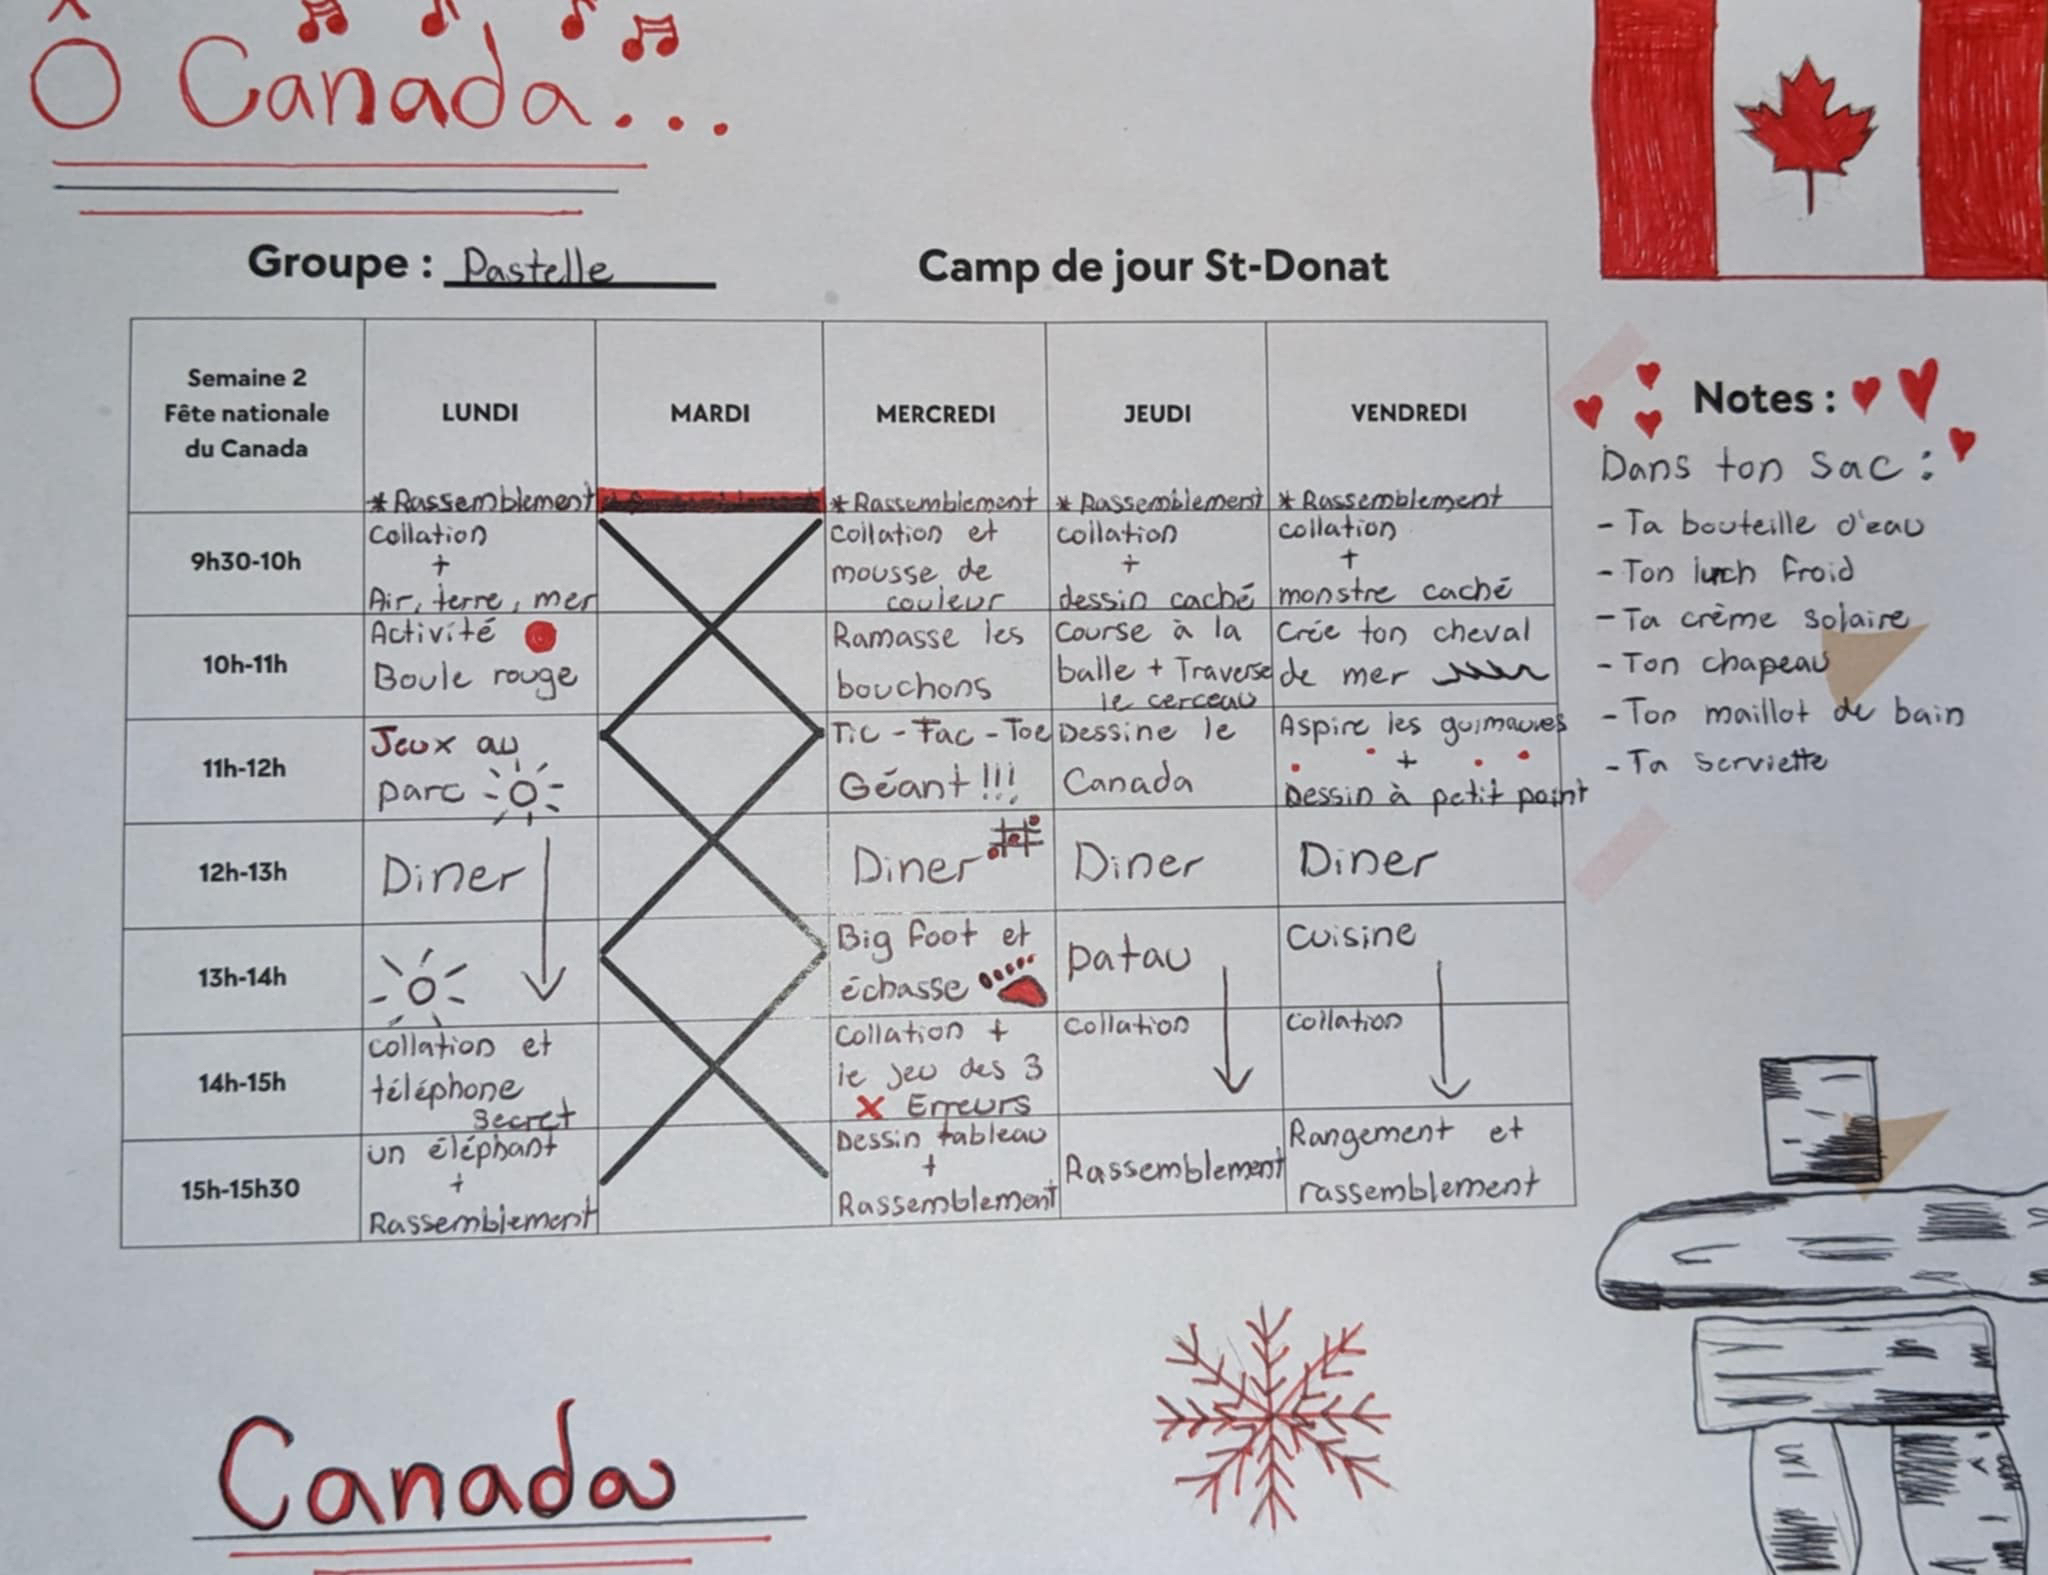 Ô Canada...
Groupe : Pastelle
Camp de jour St-Donat
Semaine 2
Fête nationale
du Canada
LUNDI
MARDI
MERCREDI
JEUDI
VENDREDI
* Rassemblement
* Rassemblement
* Rassemblement
* Rassemblement
9h30-10h
Collation
+
Air, terre, mer
Collation et
mousse de
couleur
collation
+
dessin caché
collation
+
monstre caché
10h-11h
Activité
Boule rouge
Ramasse les
bouchons
Course à la
balle + Traverse
le cerceau
Crée ton cheval
de mer
11h-12h
Jeux au
parc
Tic-Tac-Toe
Géant!!!
Dessine le
Canada
Aspire les guimauves
+
Dessin à petit point
12h-13h
Diner
Diner
Diner
Diner
13h-14h
Big foot et
échasse
patau
Cuisine
14h-15h
collation et
téléphone
secret
Collation +
le jeu des 3
x Erreurs
Collation
Collation
15h-15h30
un éléphant
+
Rassemblement
Dessin tableau
+
Rassemblement
Rassemblement
Rangement et
rassemblement
Notes :
Dans ton sac :
- Ta bouteille d'eau
- Ton lunch froid
- Ta crème solaire
- Ton chapeau
- Ton maillot de bain
- Ta serviette
Canada